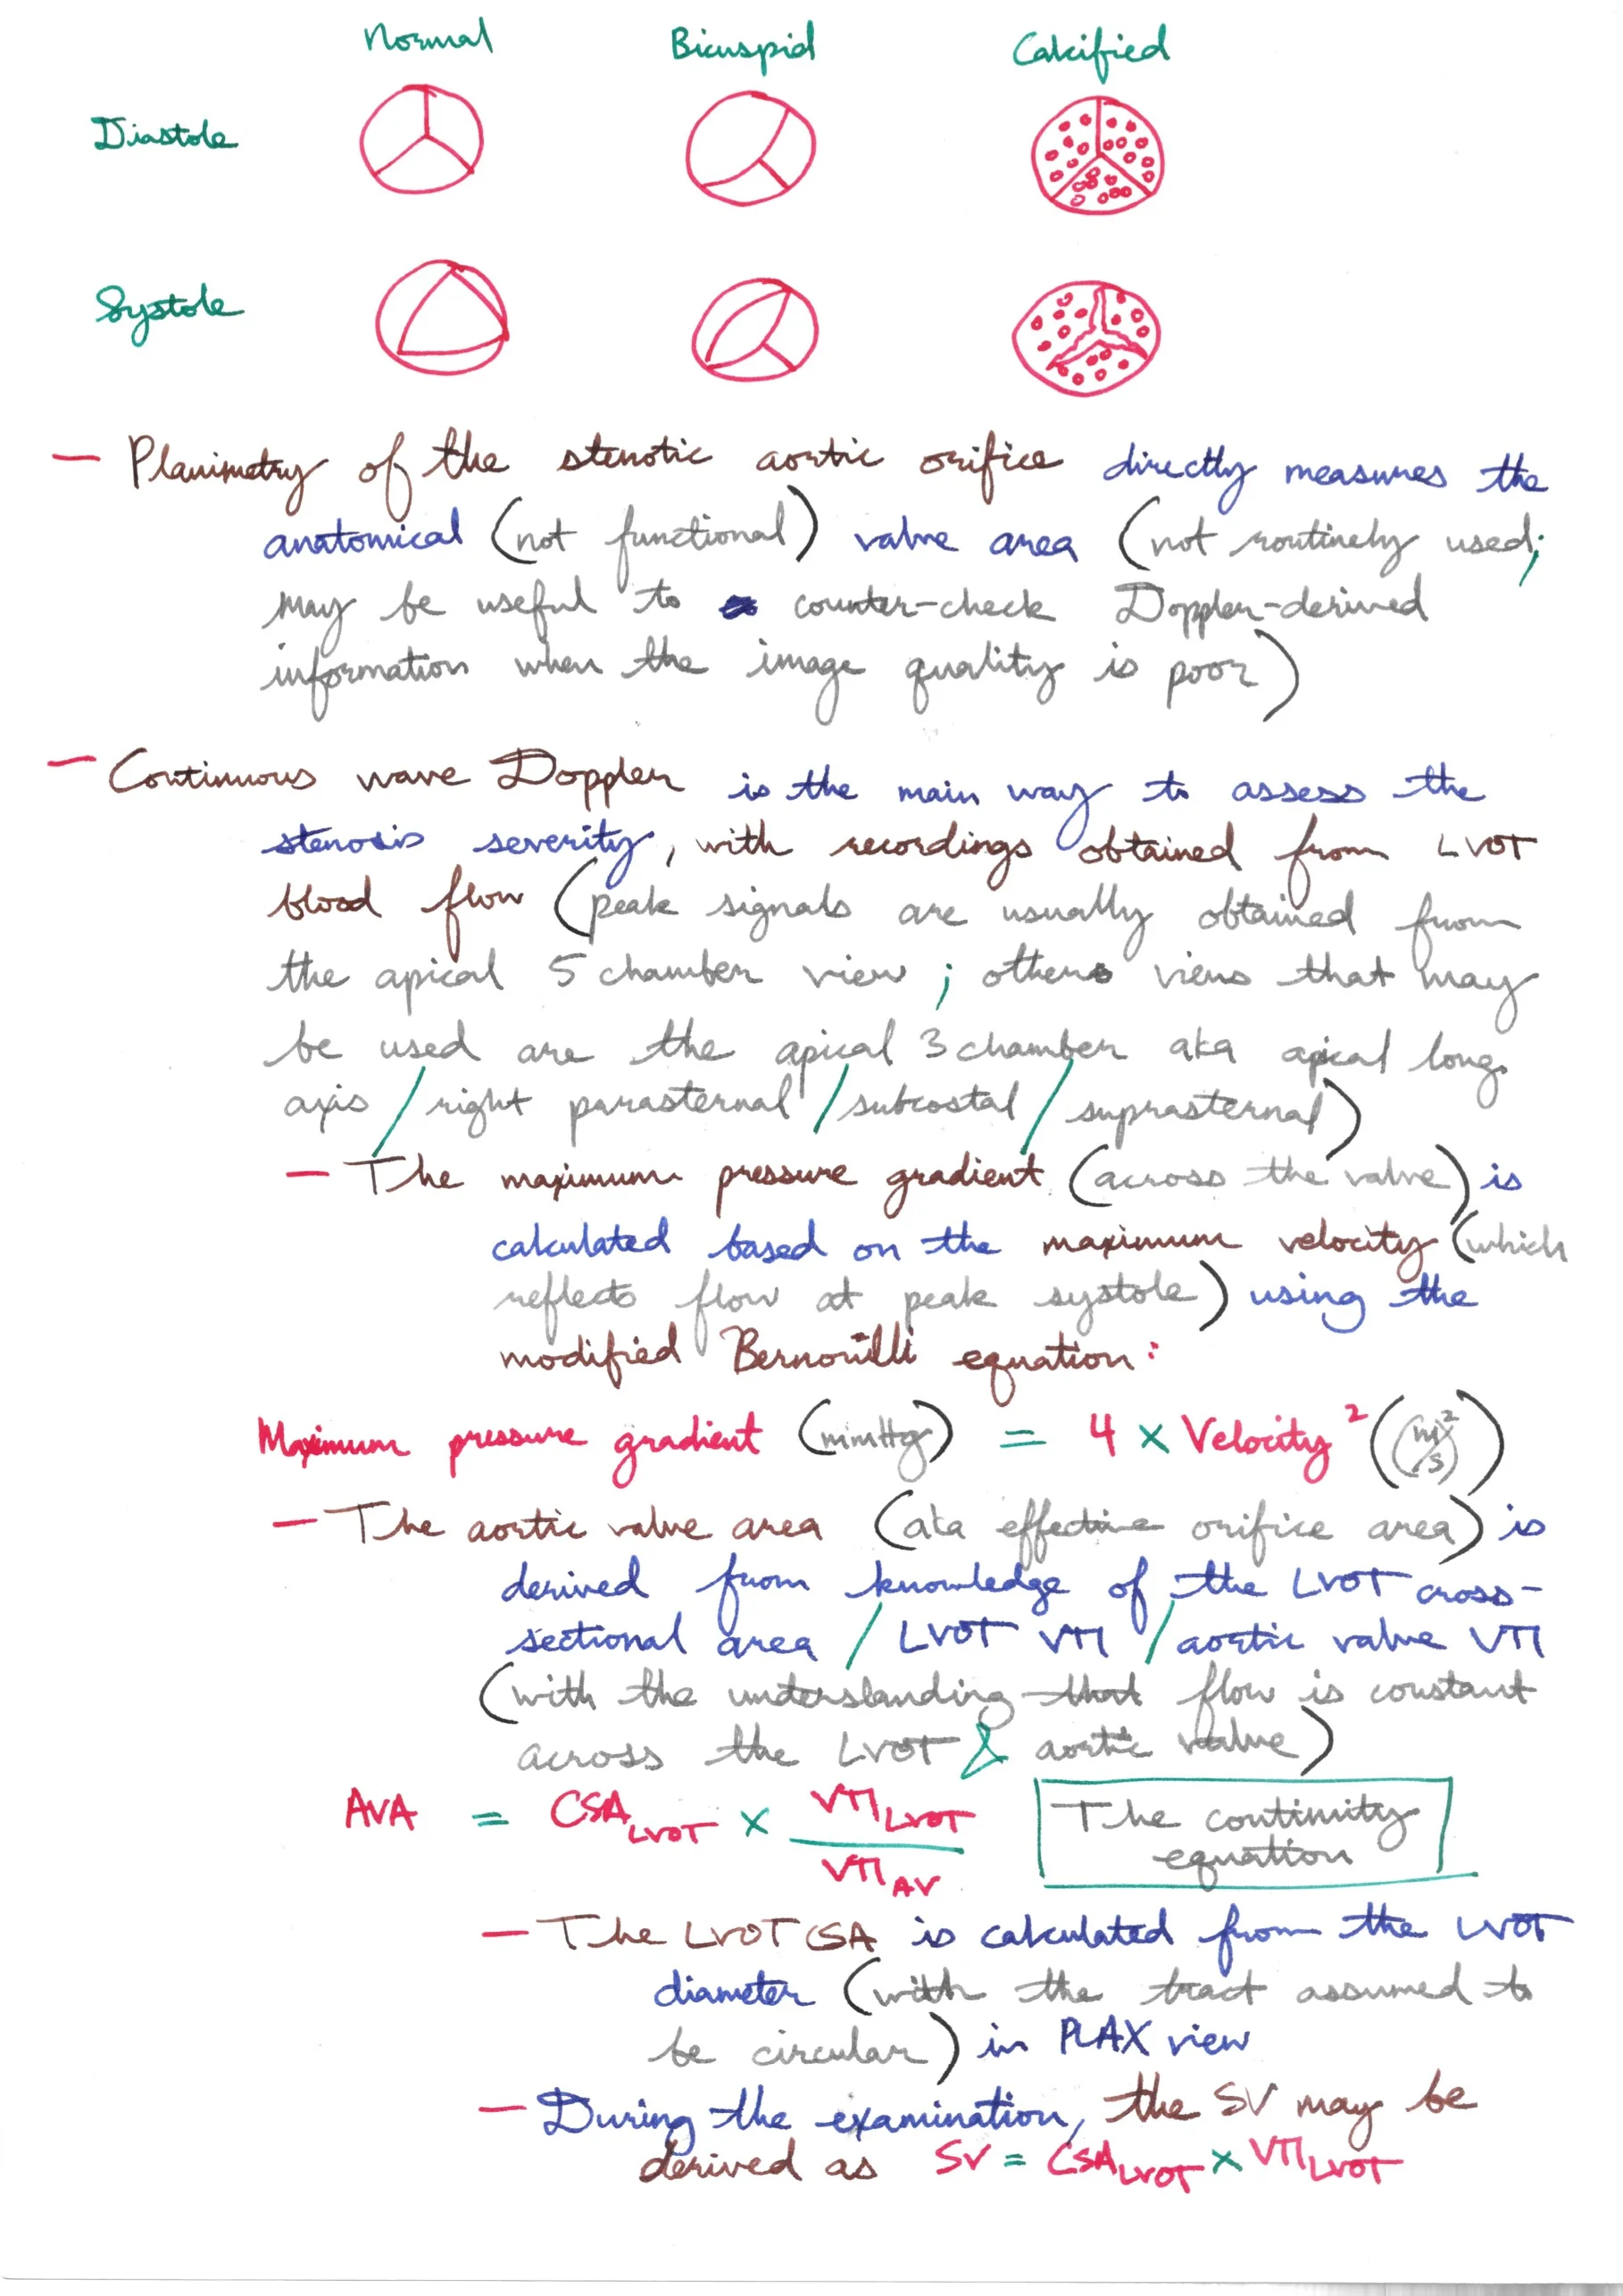 Normal Bicuspid Calcified
Diastole
Systole
— Planimetry of the stenotic aortic orifice directly measures the
anatomical (not functional) valve area (not routinely used;
may be useful to counter-check Doppler-derived
information when the image quality is poor)
— Continuous wave Doppler is the main way to assess the
stenosis severity, with recordings obtained from LVOT
blood flow (peak signals are usually obtained from
the apical 5 chamber view; others views that may
be used are the apical 3 chamber aka apical long
axis / right parasternal / subcostal / suprasternal)
— The maximum pressure gradient (across the valve) is
calculated based on the maximum velocity (which
reflects flow at peak systole) using the
modified Bernouilli equation:
Maximum pressure gradient (mmHg) = 4 × Velocity² ((m/s)²)
— The aortic valve area (aka effective orifice area) is
derived from knowledge of the LVOT cross-
sectional area / LVOT VTI / aortic valve VTI
(with the understanding that flow is constant
across the LVOT & aortic value)
AVA = CSA LVOT × VTI LVOT
VTI AV
The continuity
equation
— The LVOT CSA is calculated from the LVOT
diameter (with the tract assumed to
be circular) in PLAX view
— During the examination, the SV may be
derived as SV = CSA LVOT × VTI LVOT